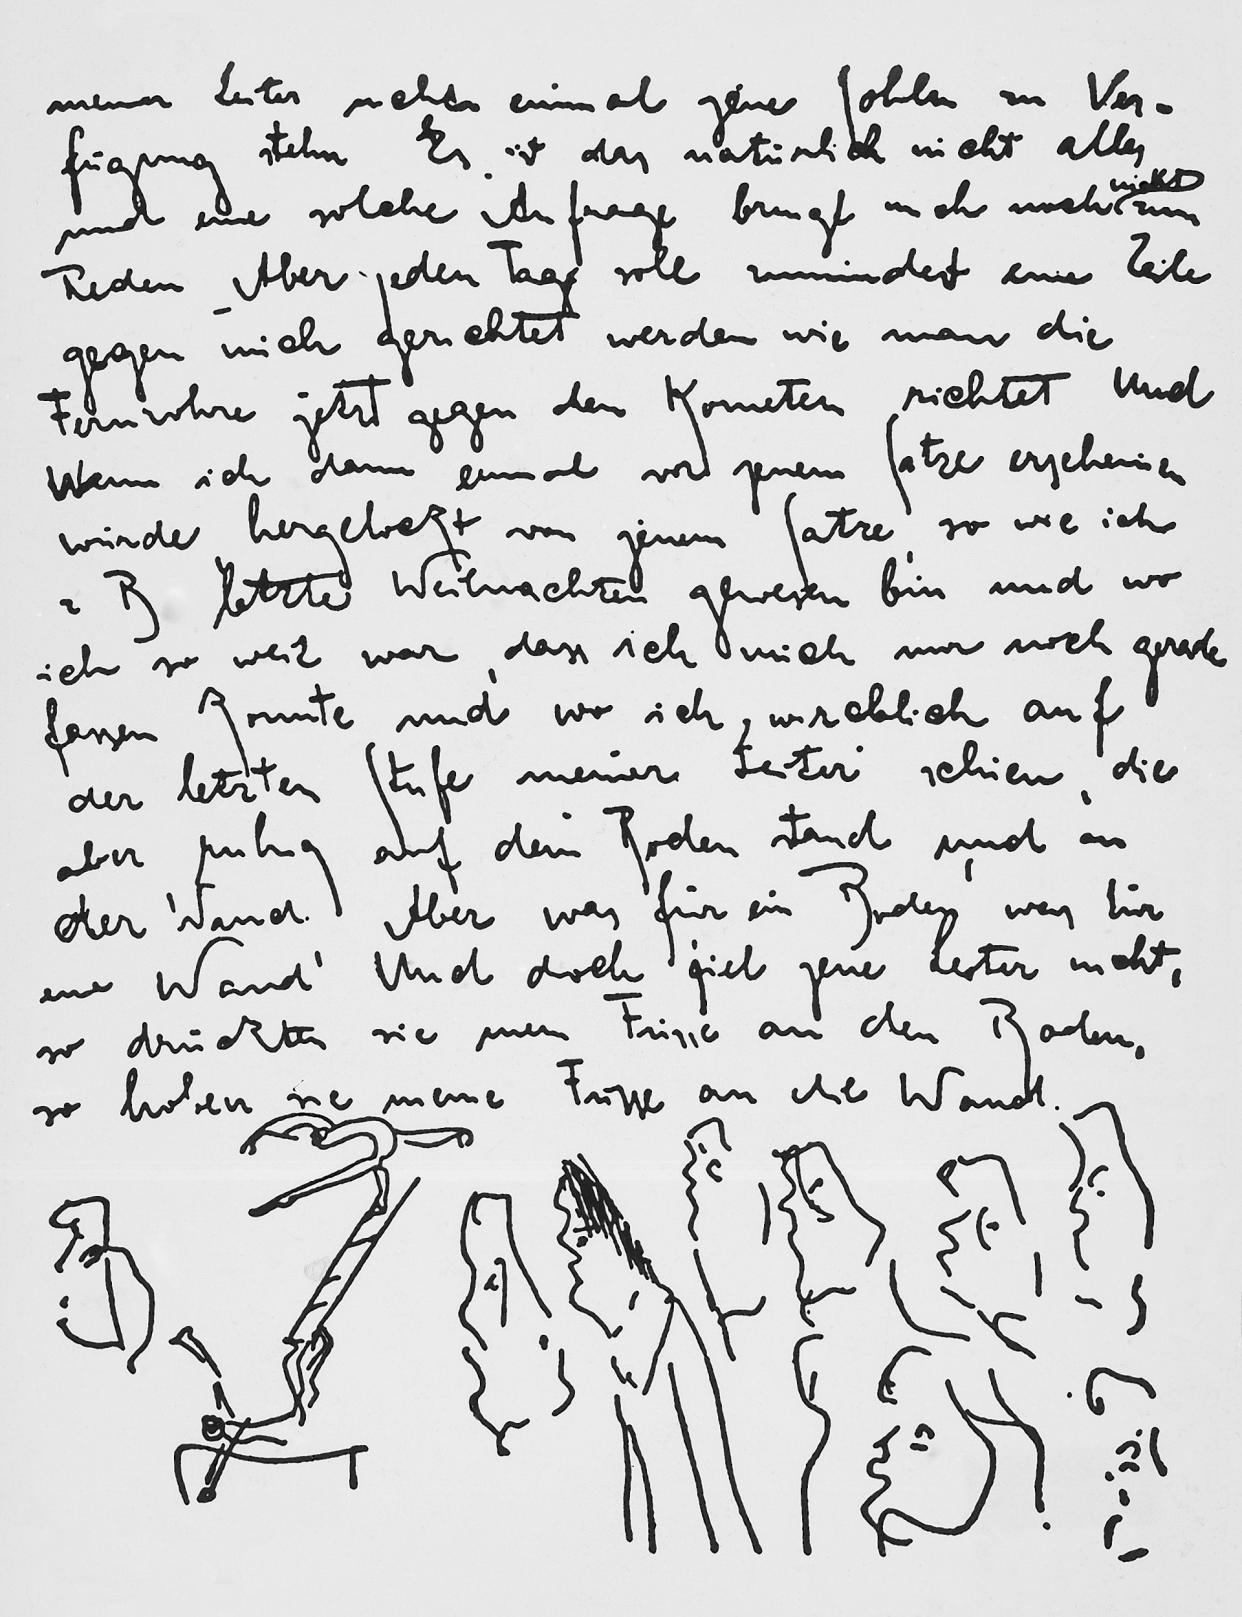 meiner Leiter nicht einmal jene Sohlen zu Ver-
fügung stehn Es ist das natürlich nicht alles
und eine solche Anfrage bringt mich noch nicht zum
Reden Aber jeden Tag soll zumindest eine Zeile
gegen mich gerichtet werden wie man die
Fernrohre jetzt gegen den Kometen richtet Und
Wenn ich dann einmal vor jenem Satze erscheinen
würde, hergelockt von jenem Satze, so wie ich
z B letzte Weihnachten gewesen bin und wo
ich so weit war, dass ich mich nur noch gerade
fassen konnte und wo ich wirklich auf
der letzten Stufe meiner Leiter schien, die
aber ruhig auf dem Boden stand und an
der Wand. Aber was für ein Boden, was für
eine Wand! Und doch fiel jene Leiter nicht,
so drückten sie meine Füsse an den Boden,
so hoben sie meine Füsse an die Wand.